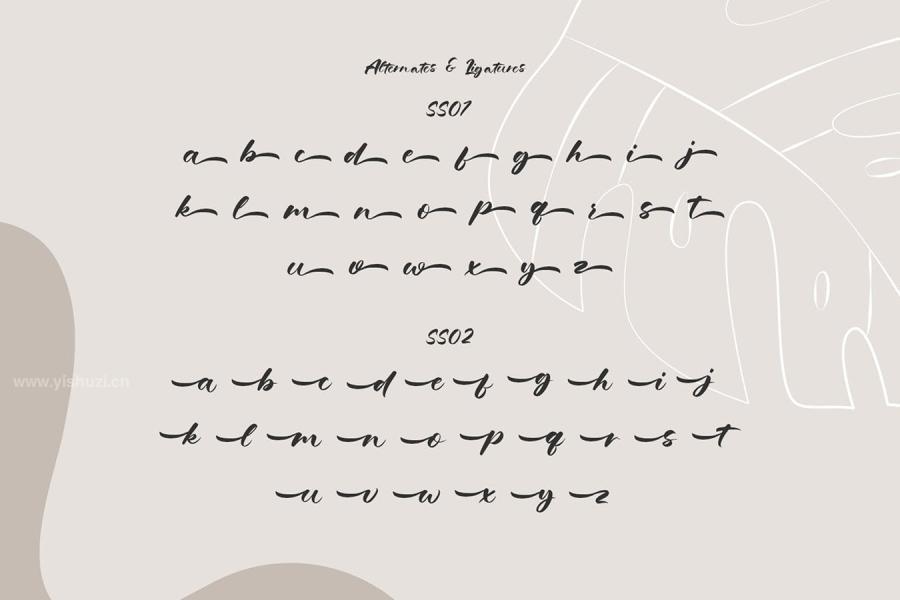 Alternates & Ligatures
SS01
a b c d e f g h i j
k l m n o p q r s t
u v w x y z
SS02
a b c d e f g h i j
www.yishuzi.cn
k l m n o p q r s t
u v w x y z